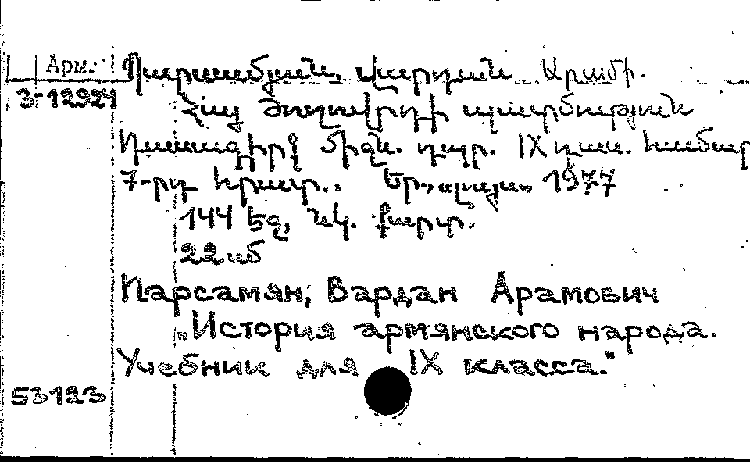 Арм.
Պարսամյան, Վարդան Արամի.
3-12921
Հայ ժողովրդի պատմություն
Դասագիրք միջն. դպր. IX դաս. համար
7-րդ հրատ.. Եր., «Լույս» 1977
144 եջ, նկ. քարտ.
22 սմ
Парсамян, Вардан Арамович
„История армянского народа.
Учебник для IX класса."
53123